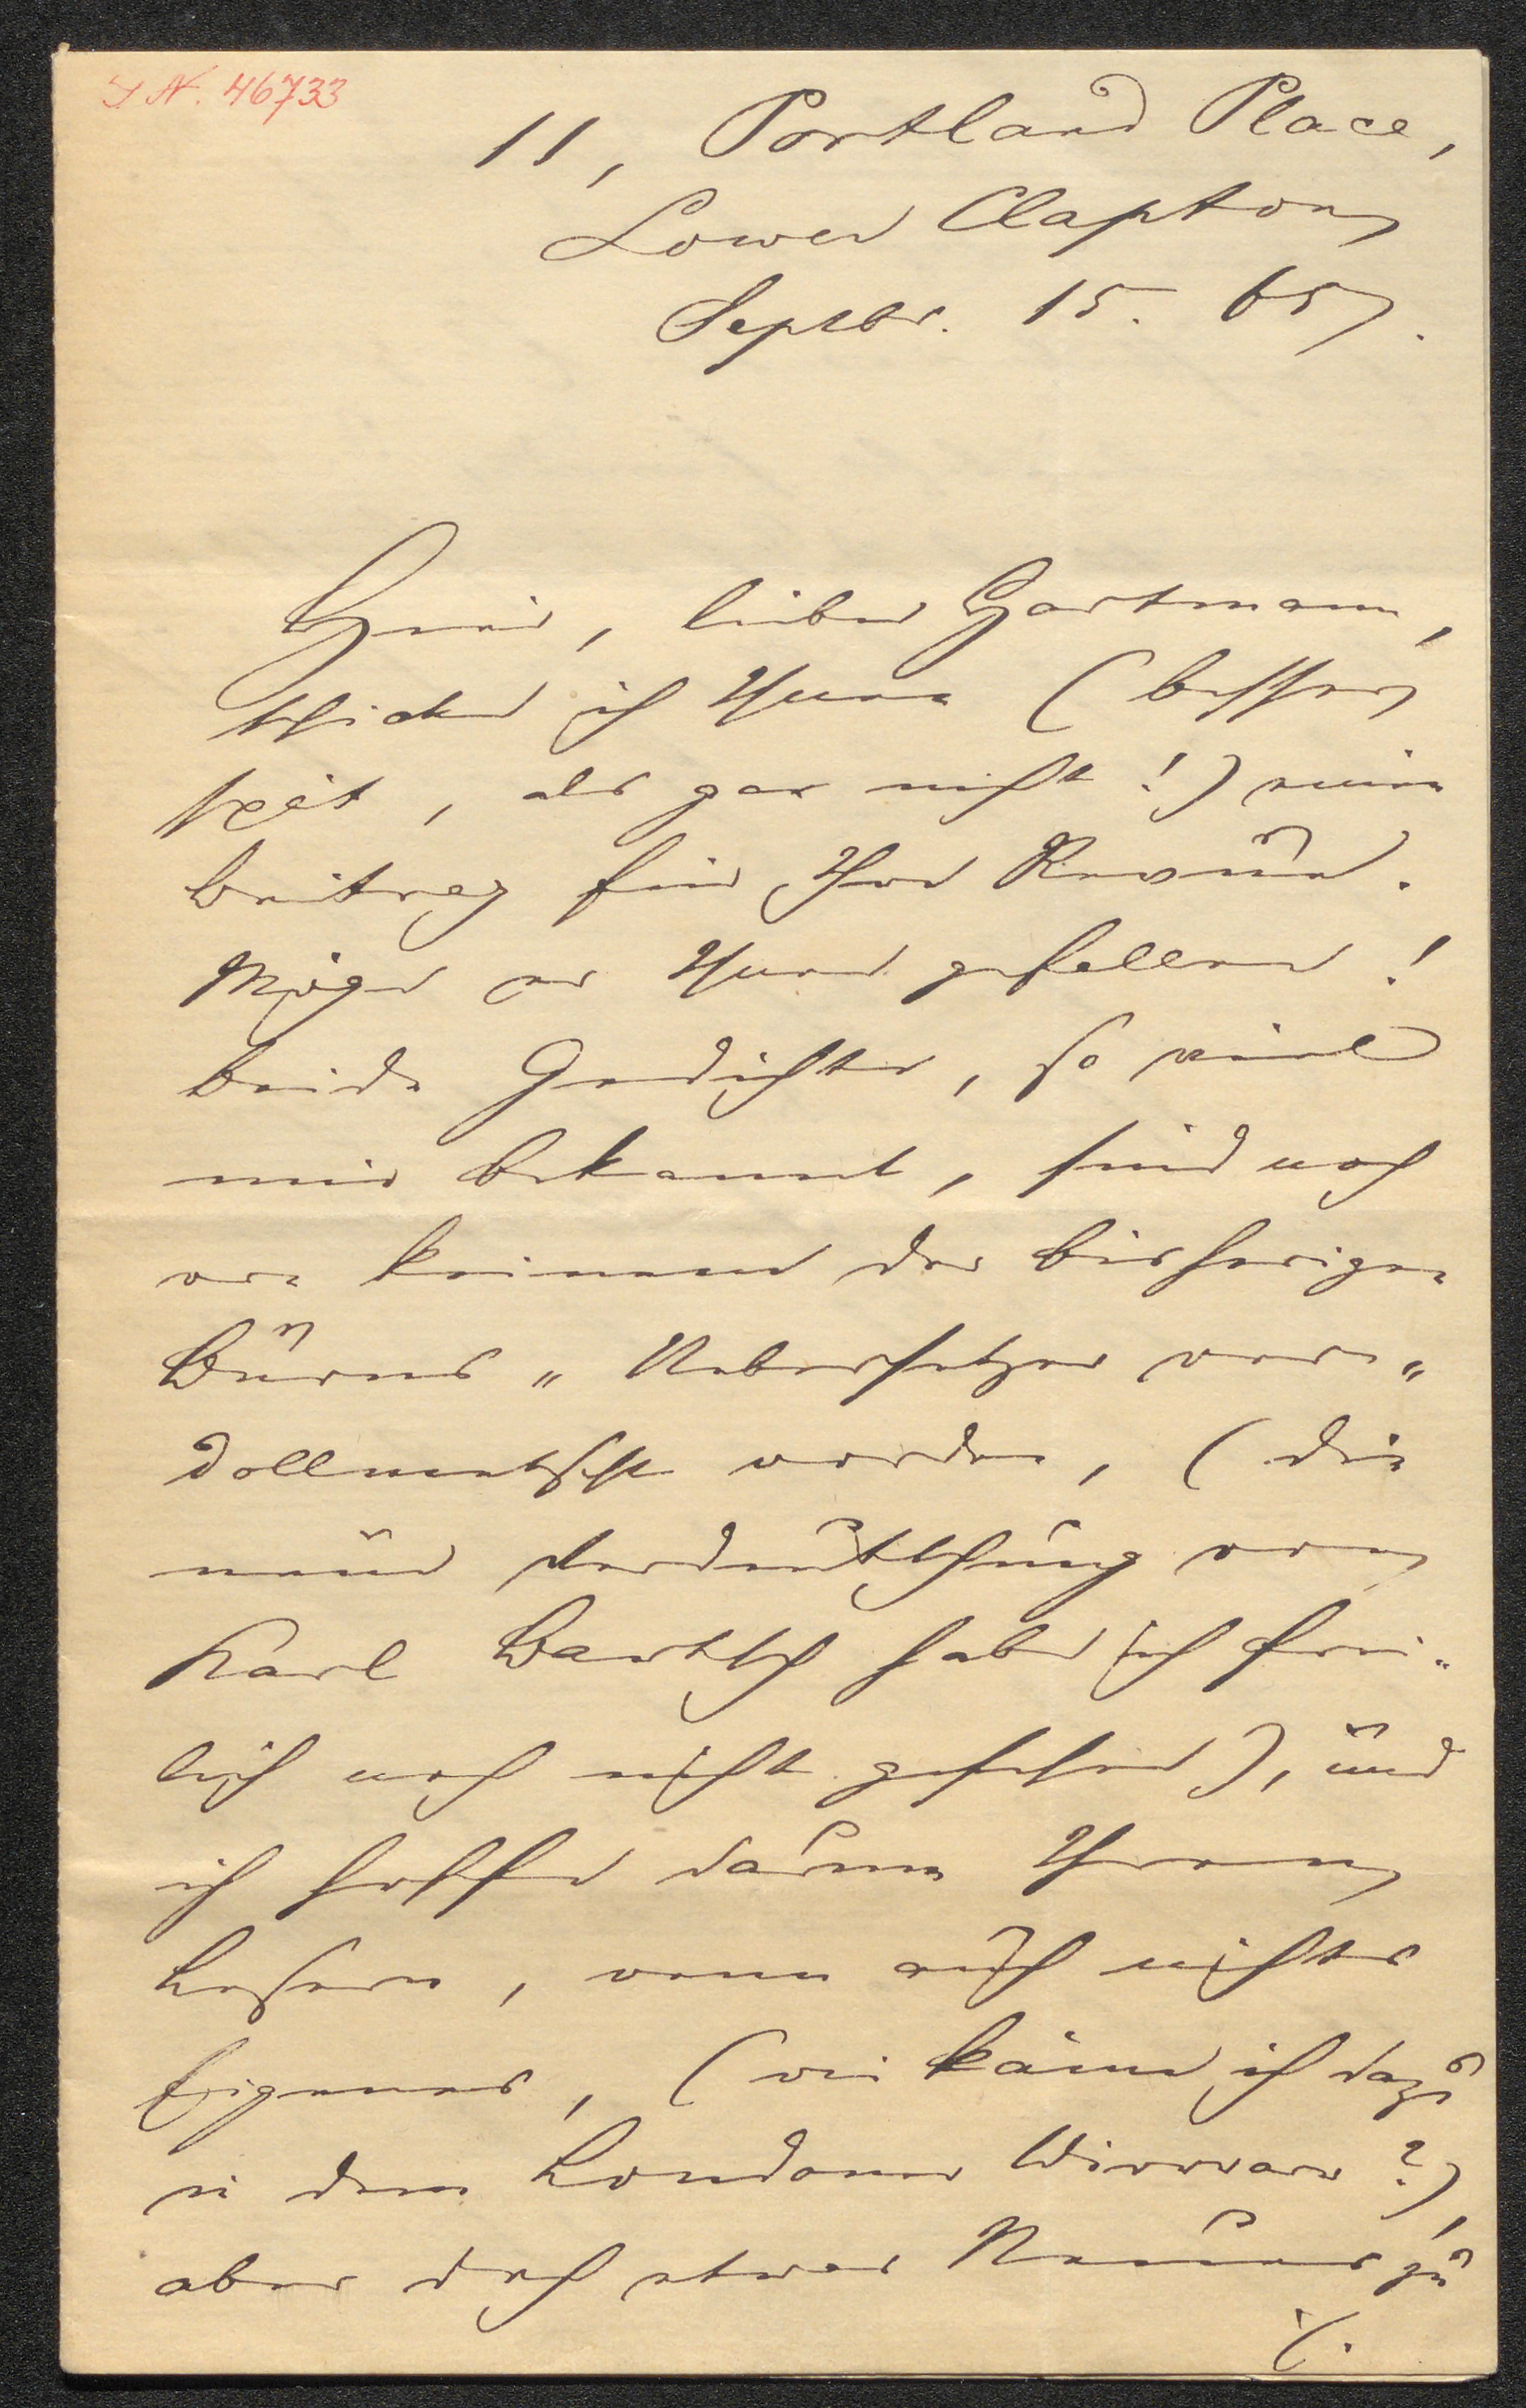 I N. 46733
11, Portland Place,
Lower Clapton,
Septbr. 15. 65.
Hier, lieber Hartmann,
schicke ich Ihnen (besser
spät, als gar nicht!) einen
Beitrag für Ihre Revue.
Möge er Ihnen gefallen!
Beide Gedichte, so viel
mir bekannt, sind noch
von keinem der bisherigen
Burns-Uebersetzer ver-
dollmetscht worden, (die
neue Verdeutschung von
Karl Bartsch habe ich frei-
lich noch nicht gesehen), und
ich hoffe darum Ihren
Lesern, wenn auch nichts
Eigenes, (wie käme ich dazu
in dem Londoner Wirrwarr?),
aber doch etwas Neues zu
./.